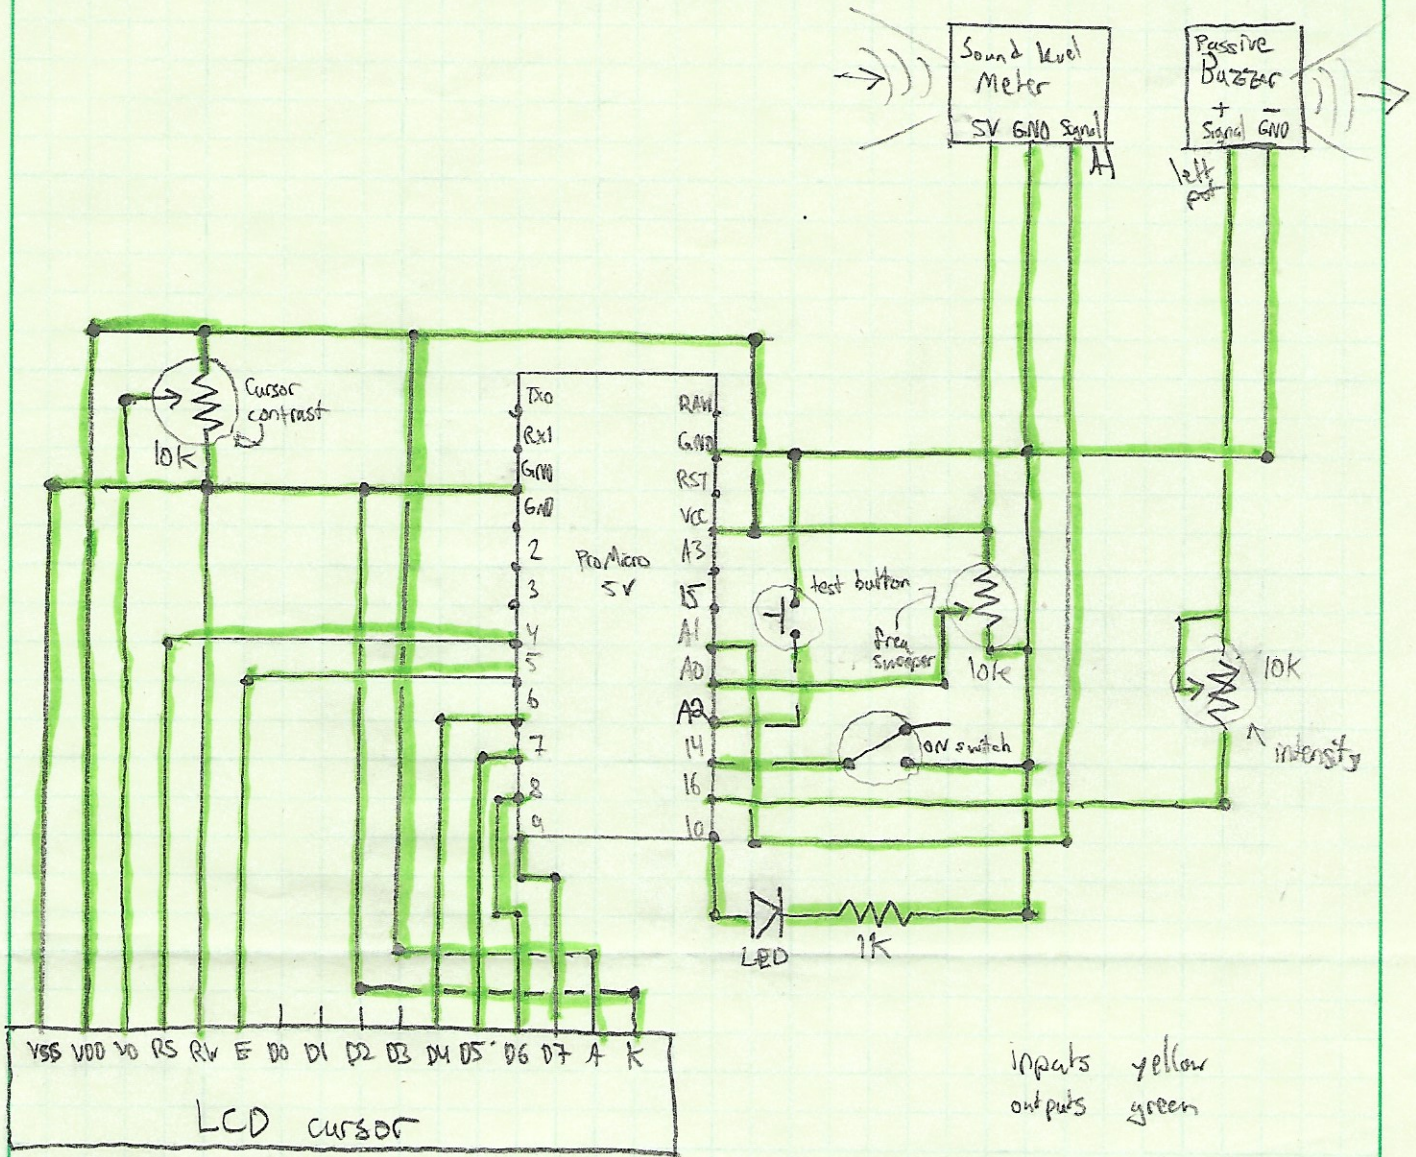 Sound level
Meter
5V GND Signal
A1
Passive
Buzzer
+ −
Signal GND
left
pot
Cursor
contrast
10K
TX0
RX1
GND
GND
2
3
4
5
6
7
8
9
ProMicro
5V
RAW
GND
RST
VCC
A3
15
A1
A0
A2
14
16
10
test button
freq
sweeper
10K
ON switch
10K
intensity
LED
1K
VSS VDD VO RS RW E D0 D1 D2 D3 D4 D5 D6 D7 A K
LCD cursor
inputs yellow
outputs green